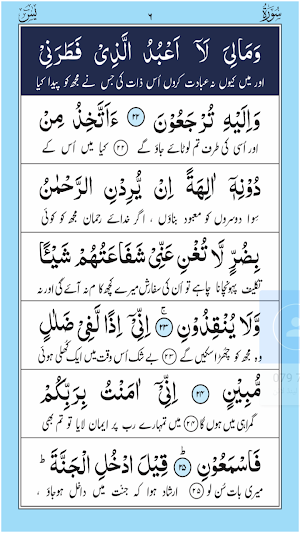 سُوْرَة ٦ يٰسٓ
وَمَالِیَ لَاۤ اَعْبُدُ الَّذِیْ فَطَرَنِیْ
اور میں کیوں نہ عبادت کروں اُس ذات کی جس نے مجھ کو پیدا کیا
وَاِلَیْهِ تُرْجَعُوْنَ ۲۲ ءَاَتَّخِذُ مِنْ
اور اُسی کی طرف تم لوٹائے جاؤ گے ۲۲ کیا میں اُس کے
دُوْنِهٖۤ اٰلِهَةً اِنْ یُّرِدْنِ الرَّحْمٰنُ
سِوا دوسروں کو معبود بناؤں ، اگر خدائے رحمان مجھ کو کوئی
بِضُرٍّ لَّا تُغْنِ عَنِّیْ شَفَاعَتُهُمْ شَیْـًٔا
تکلیف پہونچانا چاہے تو اُن کی سفارش میرے کچھ کام نہ آئے گی اور نہ
وَّلَا یُنْقِذُوْنِ ۚ ۲۳ اِنِّیْۤ اِذًا لَّفِیْ ضَلٰلٍ
وہ مجھ کو چھڑا سکیں گے ۲۳ بے شک اُس وقت میں ایک کھلی ہوئی
مُّبِیْنٍ ۲۴ اِنِّیْۤ اٰمَنْتُ بِرَبِّكُمْ
گمراہی میں ہوں گا ۲۴ میں تمہارے رب پر ایمان لایا تو تم بھی
فَاسْمَعُوْنِ ؕ ۲۵ قِیْلَ ادْخُلِ الْجَنَّةَ ؕ
میری بات سُن لو ۲۵ ارشاد ہوا کہ جنت میں داخل ہوجاؤ ،